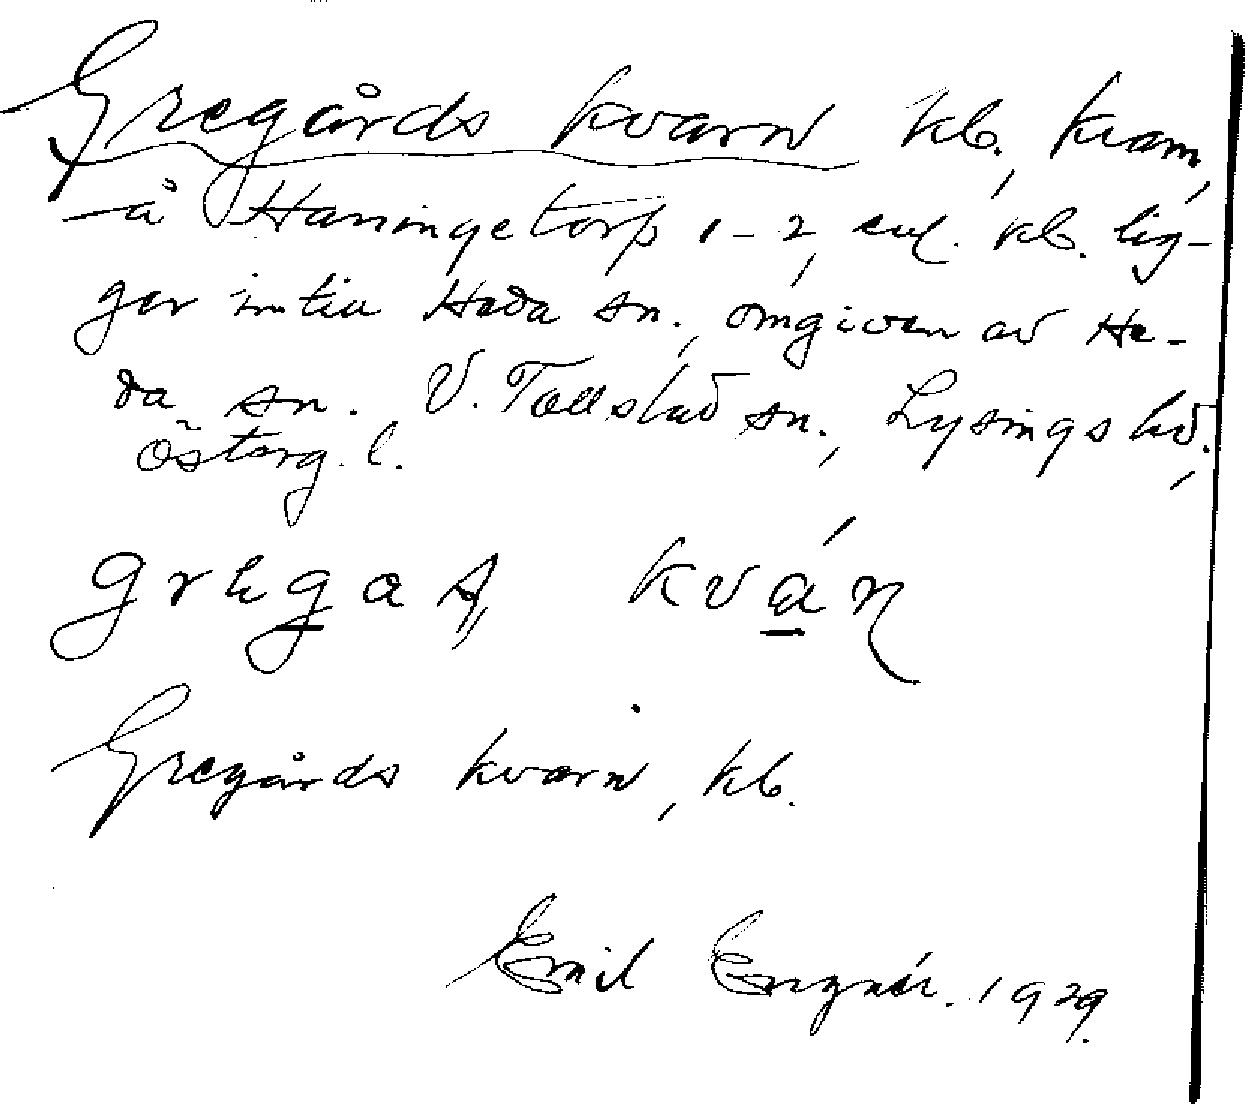 Gregårds kvarn kb., kvarn,
å Haningetorp 1-2, enl. kb. lig-
ger intill Heda sn., omgiven av He-
da sn. V. Tollstad sn., Lysings hd.,
Österg. l.
kván
Gregårds kvarn, kb.
Emil Engnér. 1929.